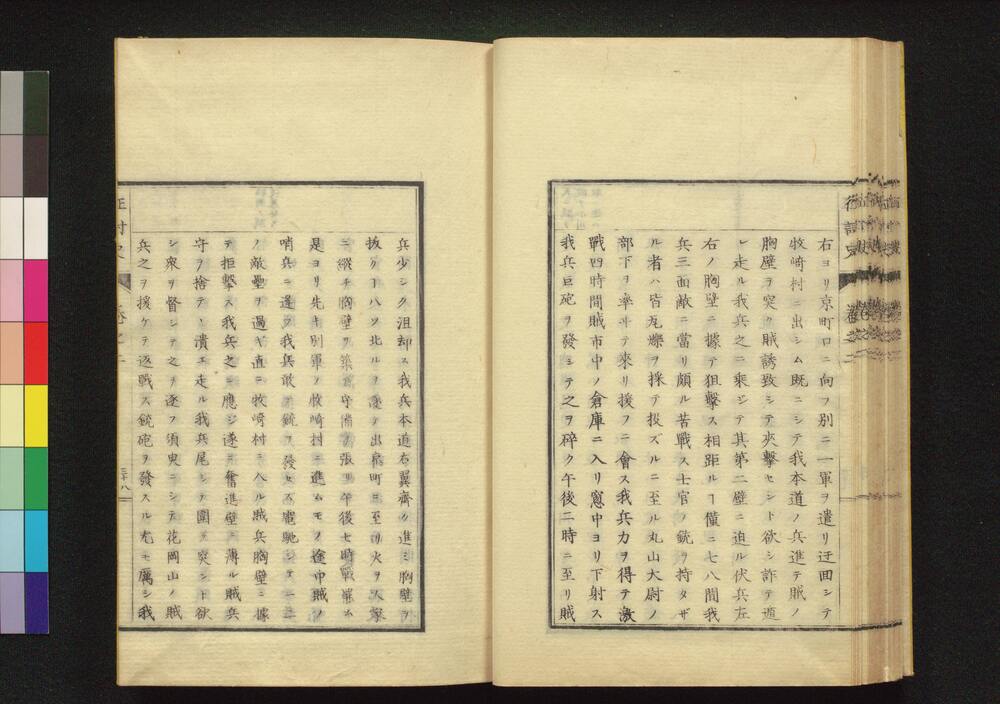 右ヨリ京町口ニ向フ別ニ一軍ヲ遣リ迂回シテ
牧崎村ニ出シム既ニシテ我本道ノ兵進テ賊ノ
胸壁ヲ突ク賊誘致シテ夾撃セント欲シ詐テ遁
レ走ル我兵之ニ乘シテ其第二壁ニ迫ル伏兵左
右ノ胸壁ニ據テ狙擊ス相距ルヿ僅ニ七八間我
兵三面敵ニ當リ頗ル苦戰ス士官ノ銃ヲ持タザ
ル者ハ皆瓦礫ヲ採テ投ズルニ至ル丸山大尉ノ
部下ヲ率ヰテ來リ援フニ會ス我兵力ヲ得テ激
戰四時間賊市中ノ倉庫ニ入リ窓中ヨリ下射ス
我兵巨砲ヲ發シテ之ヲ碎ク午後二時ニ至リ賊
兵少シク沮却ス我兵本道右翼齊ク進ミ胸壁ヲ
拔クヿ八ツ北ルヲ
出京町ニ至リ火ヲ
ニ縱チ胸壁ヲ築
守備ヲ張リ午後七時戰罷ム
是ヨリ先キ別軍ノ牧崎村ニ進ムモノ途中賊ノ
哨兵ニ逢フ我兵敢テ銃ヲ發セズ
馳シテ一二
ノ敵壘ヲ過ギ直ニ牧崎村ニ入ル賊兵胸壁ニ據
テ拒擊ス我兵之ニ應ジ遂ニ奮進壁ニ薄ル賊兵
守ヲ捨テヽ潰エ走ル我兵尾シテ圍ヲ突ント欲
シ衆ヲ督シテ之ヲ逐フ須臾ニシテ花岡山ノ賊
兵之ヲ援ケテ返戰ス銃砲ヲ發スル尤モ厲シ我
三十八